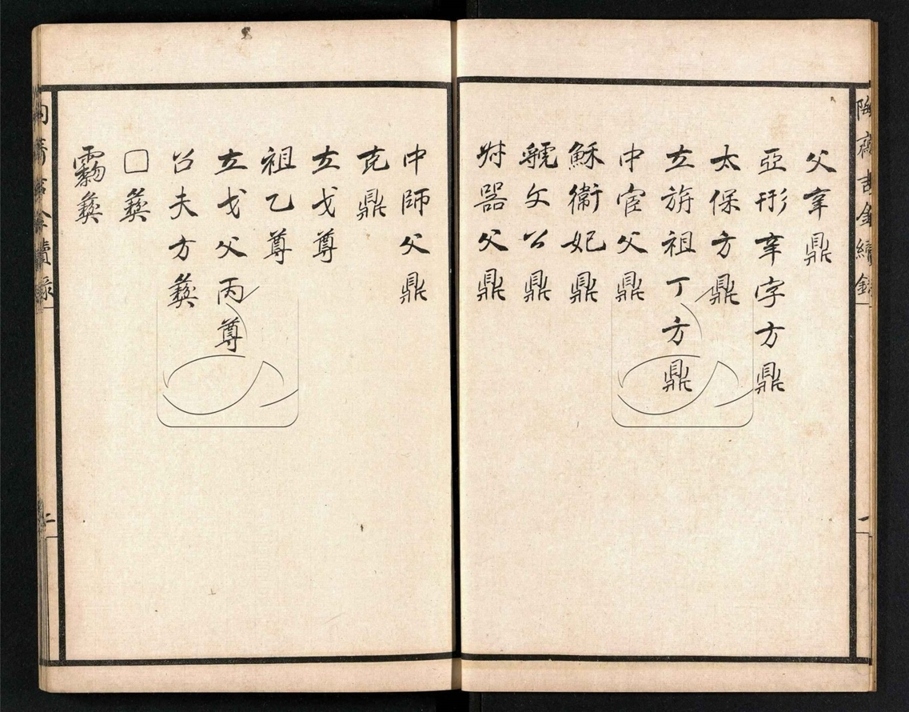 陶齋吉金續錄
一
父辛鼎
亞形辛字方鼎
太保方鼎
立旂祖丁方鼎
中宦父鼎
穌衞妃鼎
虢文公鼎
器父鼎
中師父鼎
克鼎
立戈尊
祖乙尊
立戈父丙尊
夫方彝
□彝
彝
陶齋吉金續錄
二